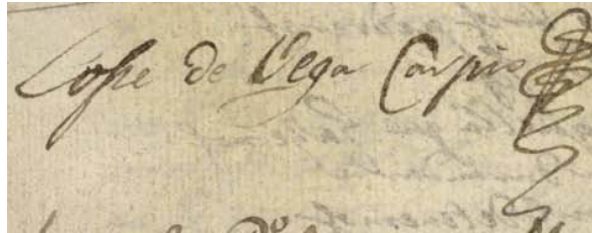 Lope de Vega Carpio